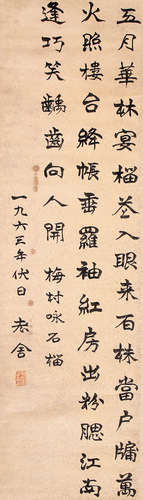 五月華林宴榴花入眼来百株當户牖萬
火照樓台絳帳垂羅袖紅房出粉腮江南
逢巧笑齲齒向人開 梅村咏石榴
一九六三年伏日 老舍